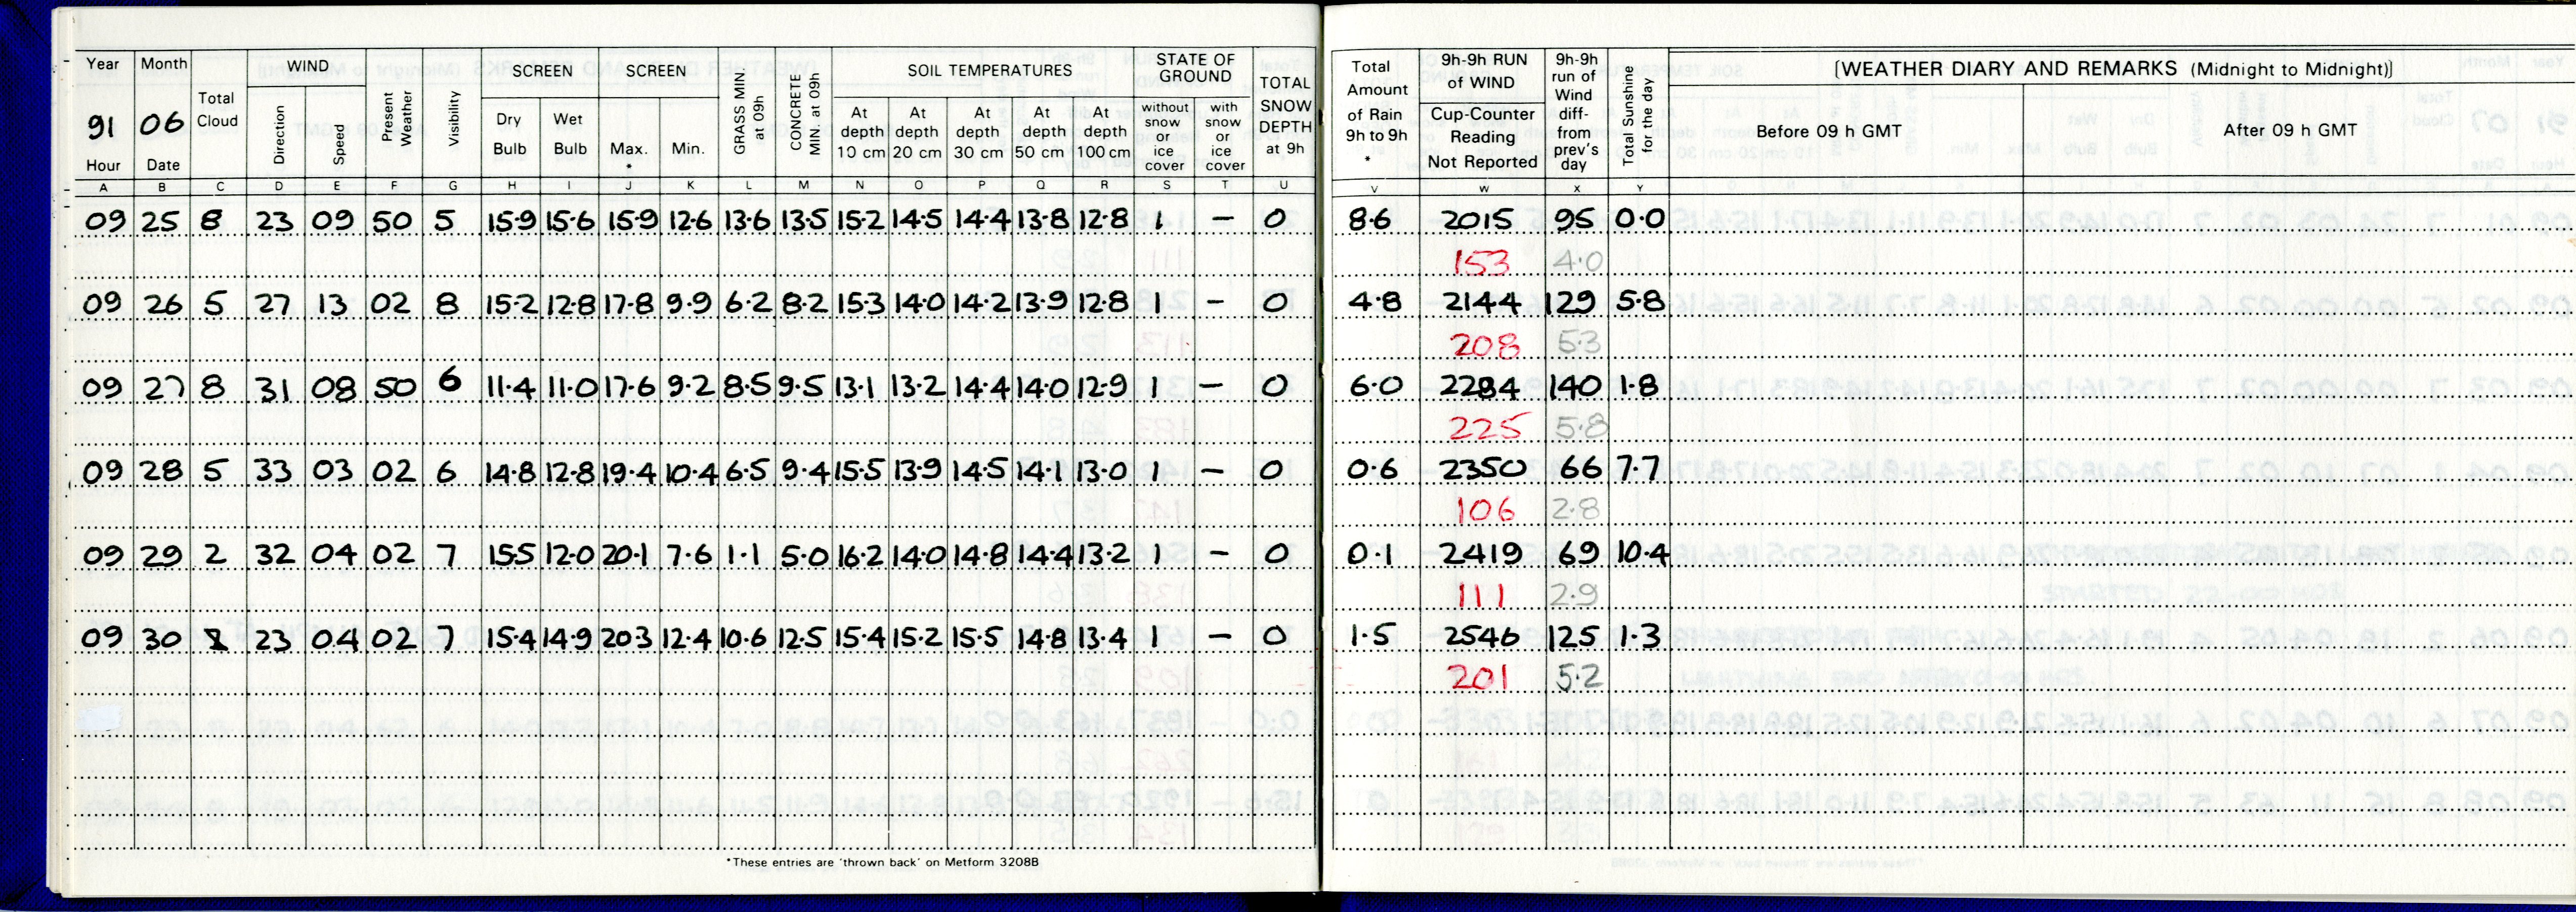 Year Month WIND SCREEN SCREEN SOIL TEMPERATURES STATE OF GROUND
91 06 Total Cloud Direction Speed Present Weather Visibility Dry Bulb Wet Bulb Max. * Min. GRASS MIN. at 09h CONCRETE MIN. at 09h At depth 10 cm At depth 20 cm At depth 30 cm At depth 50 cm At depth 100 cm without snow or ice cover with snow or ice cover TOTAL SNOW DEPTH at 9h
Hour Date
A B C D E F G H I J K L M N O P Q R S T U
09 25 8 23 09 50 5 15.9 15.6 15.9 12.6 13.6 13.5 15.2 14.5 14.4 13.8 12.8 1 – 0
09 26 5 27 13 02 8 15.2 12.8 17.8 9.9 6.2 8.2 15.3 14.0 14.2 13.9 12.8 1 – 0
09 27 8 31 08 50 6 11.4 11.0 17.6 9.2 8.5 9.5 13.1 13.2 14.4 14.0 12.9 1 – 0
09 28 5 33 03 02 6 14.8 12.8 19.4 10.4 6.5 9.4 15.5 13.9 14.5 14.1 13.0 1 – 0
09 29 2 32 04 02 7 15.5 12.0 20.1 7.6 1.1 5.0 16.2 14.0 14.8 14.4 13.2 1 – 0
09 30 23 04 02 7 15.4 14.9 20.3 12.4 10.6 12.5 15.4 15.2 15.5 14.8 13.4 1 – 0
*These entries are 'thrown back' on Metform 3208B
Total Amount of Rain 9h to 9h * 9h-9h RUN of WIND Cup-Counter Reading Not Reported 9h-9h run of Wind diff- from prev's day Total Sunshine for the day [WEATHER DIARY AND REMARKS (Midnight to Midnight)]
Before 09 h GMT After 09 h GMT
V W X Y
8.6 2015 95 0.0
153 4.0
4.8 2144 129 5.8
208 5.3
6.0 2284 140 1.8
225 5.8
0.6 2350 66 7.7
106 2.8
0.1 2419 69 10.4
111 2.9
1.5 2546 125 1.3
201 5.2